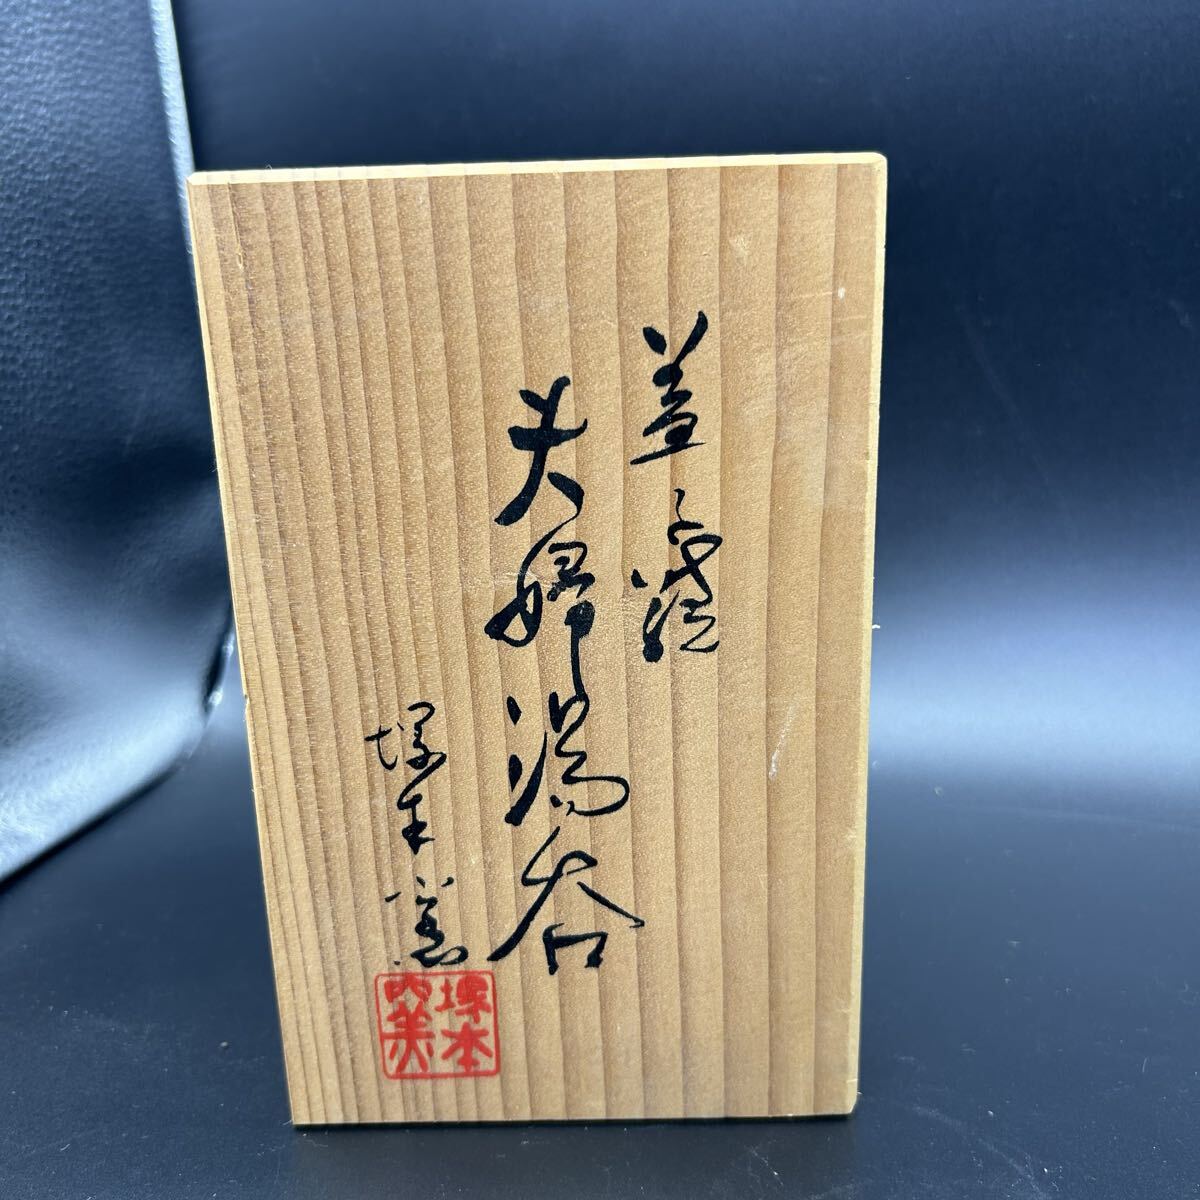 益子焼
夫婦湯呑
塚本窯
塚本